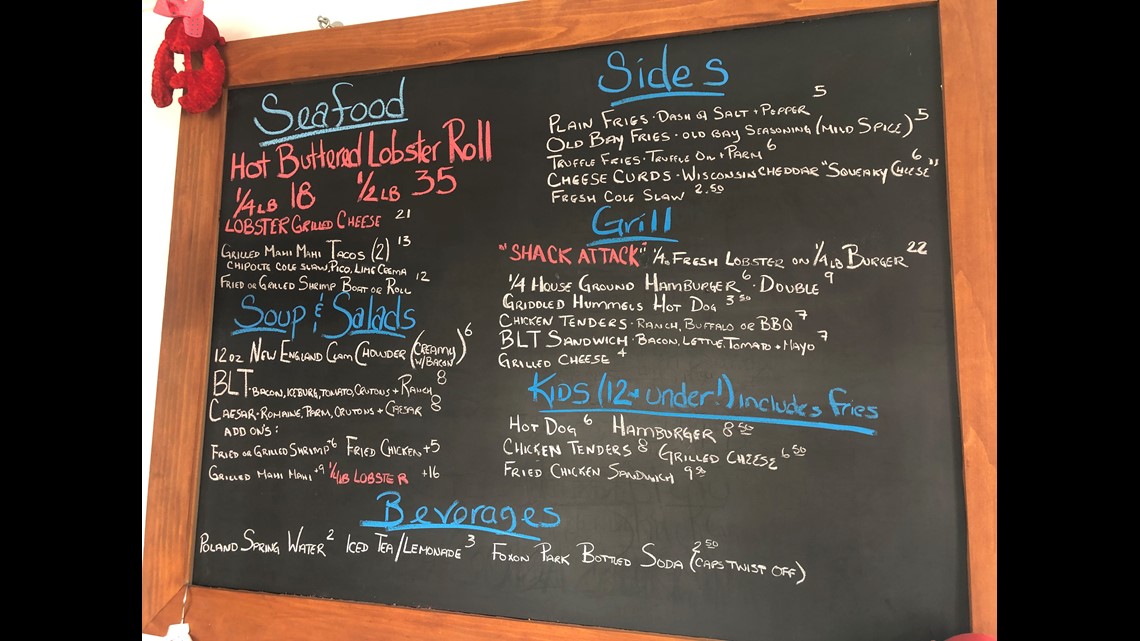 Seafood
Hot Buttered Lobster Roll
1/4 LB 18 1/2 LB 35
LOBSTER GRILLED CHEESE 21
GRILLED MAHI MAHI TACOS (2) 13
CHIPOLTE COLE SLAW, PICO, LIME CREMA
FRIED OR GRILLED SHRIMP BOAT OR ROLL 12
Soup & Salads
12 OZ NEW ENGLAND CLAM CHOWDER (CREAMY W/BACON) 6
BLT - BACON, ICEBURG, TOMATO, CRUTONS + RANCH 8
CAESAR - ROMAINE, PARM, CRUTONS + CAESAR 8
ADD ONS:
FRIED OR GRILLED SHRIMP +6 FRIED CHICKEN +5
GRILLED MAHI MAHI +9 1/4 LB LOBSTER +16
Sides
PLAIN FRIES · DASH OF SALT + PEPPER 5
OLD BAY FRIES · OLD BAY SEASONING (MILD SPICE) 5
TRUFFLE FRIES · TRUFFLE OIL + PARM 6
CHEESE CURDS · WISCONSIN CHEDDAR "SQUEAKY CHEESE" 6
FRESH COLE SLAW 2.50
Grill
"SHACK ATTACK" 1/4 LB FRESH LOBSTER ON 1/4 LB BURGER 22
1/4 HOUSE GROUND HAMBURGER 6 · DOUBLE 9
GRIDDLED HUMMELS HOT DOG 3 50
CHICKEN TENDERS · RANCH, BUFFALO OR BBQ 7
BLT SANDWICH · BACON, LETTUCE, TOMATO + MAYO 7
GRILLED CHEESE 4
KIDS (12 + under!) includes fries
HOT DOG 6 HAMBURGER 8 50
CHICKEN TENDERS 8 GRILLED CHEESE 6 50
FRIED CHICKEN SANDWICH 9 50
Beverages
POLAND SPRING WATER 2 ICED TEA/LEMONADE 3 FOXON PARK BOTTLED SODA 2 50 (CAPS TWIST OFF)